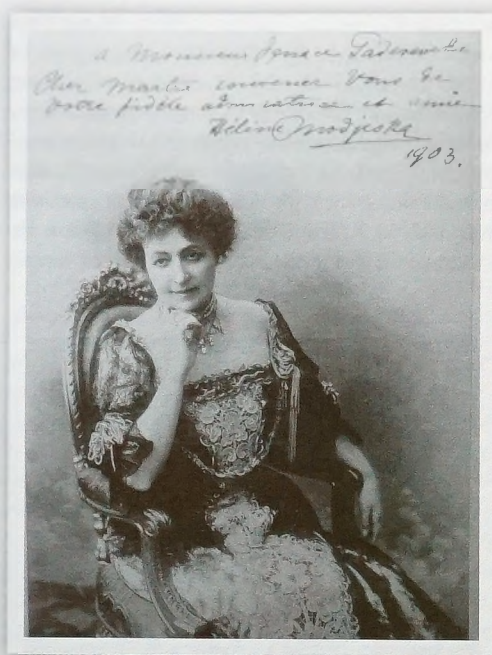 à Monsieur Ignace Paderewski
Cher Maître souvenez vous de
votre fidèle admiratrice et amie
Hélène Modjeska
1903.